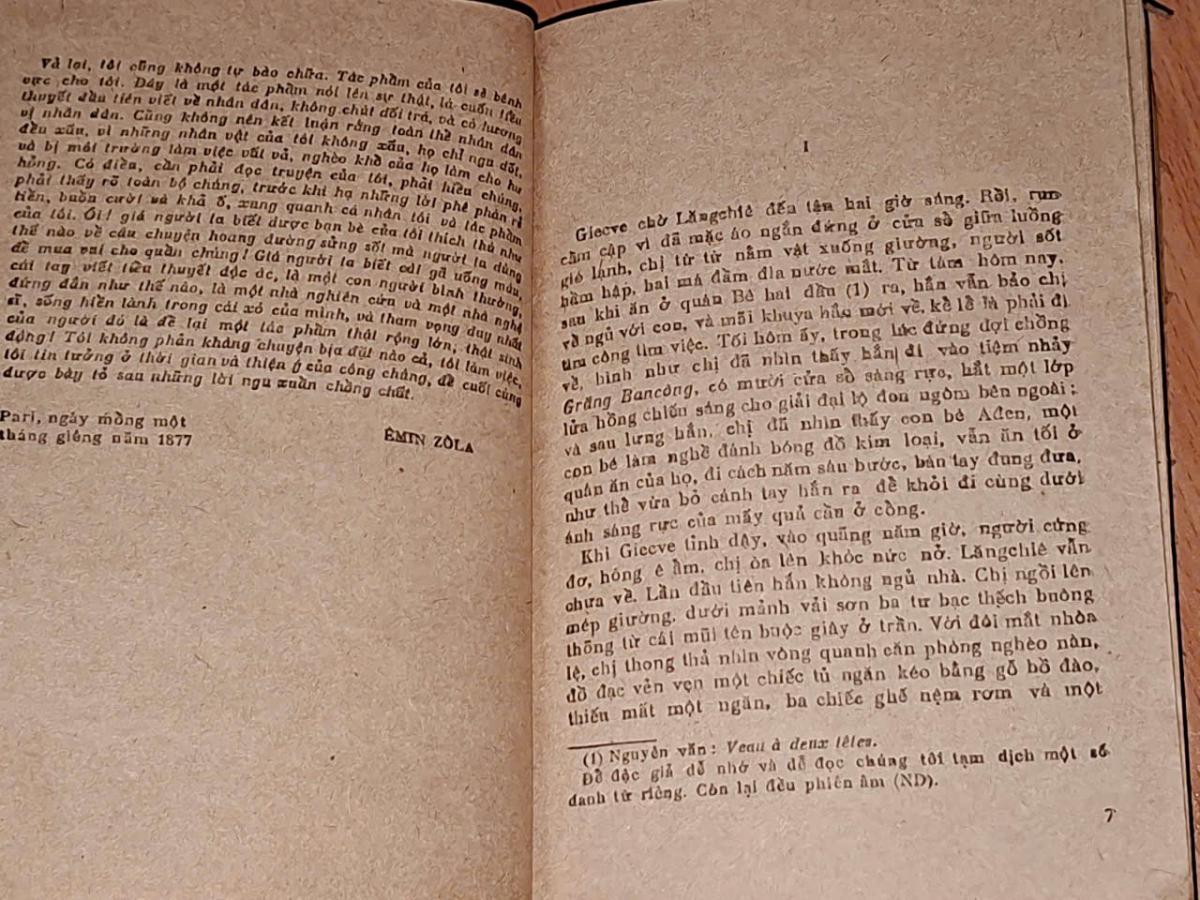 Vả lại, tôi cũng không tự bào chữa. Tác phẩm của tôi sẽ bênh
vực cho tôi. Đây là một tác phẩm nói lên sự thật, là cuốn tiểu
thuyết đầu tiên viết về nhân dân, không chút dối trá, và có hương
vị nhân dân. Cũng không nên kết luận rằng toàn thể nhân dân
đều xấu, vì những nhân vật của tôi không xấu, họ chỉ ngu dốt,
và bị môi trường làm việc vất vả, nghèo khổ của họ làm cho hư
hỏng. Có điều, cần phải đọc truyện của tôi, phải hiểu chúng,
phải thấy rõ toàn bộ chúng, trước khi hạ những lời phê phán rẻ
tiền, buồn cười và khả ố, xung quanh cá nhân tôi và tác phẩm
của tôi. Ôi! giá người ta biết được bạn bè của tôi thích thú như
thế nào về câu chuyện hoang đường sửng sốt mà người ta dùng
để mua vui cho quần chúng! Giá người ta biết cái gã uống máu,
cái tay viết tiểu thuyết độc ác, là một con người bình thường,
đứng đắn như thế nào, là một nhà nghiên cứu và một nhà nghệ
sĩ, sống hiền lành trong cái xó của mình, và tham vọng duy nhất
của người đó là để lại một tác phẩm thật rộng lớn, thật sinh
động! Tôi không phản kháng chuyện bịa đặt nào cả, tôi làm việc,
tôi tin tưởng ở thời gian và thiện ý của công chúng, để cuối cùng
được bày tỏ sau những lời ngu xuẩn chồng chất.
Pari, ngày mồng một
tháng giêng năm 1877
ÊMIN ZÔLA
I
Giecve chờ Lăngchiê đến tận hai giờ sáng. Rồi, run
cầm cập vì đã mặc áo ngắn đứng ở cửa sổ giữa luồng
gió lạnh, chị từ từ nằm vật xuống giường, người sốt
hầm hập, hai má đầm đìa nước mắt. Từ tám hôm nay,
sau khi ăn ở quán Bê hai đầu (1) ra, hắn vẫn bảo chị
về ngủ với con, và mãi khuya hắn mới về, kể lể là phải đi
tìm công tìm việc. Tối hôm ấy, trong lúc đứng đợi chồng
về, hình như chị đã nhìn thấy hắn đi vào tiệm nhảy
Grăng Bancông, có mười cửa sổ sáng rực, hắt một lớp
lửa hồng chiếu sáng cho giải đại lộ đen ngòm bên ngoài;
và sau lưng hắn, chị đã nhìn thấy con bé Ađen, một
con bé làm nghề đánh bóng đồ kim loại, vẫn ăn tối ở
quán ăn của họ, đi cách năm sáu bước, bàn tay đung đưa,
như thể vừa bỏ cánh tay hắn ra để khỏi đi cùng dưới
ánh sáng rực của mấy quả cầu ở cổng.
Khi Giecve tỉnh dậy, vào quãng năm giờ, người cứng
đơ, hông ê ẩm, chị òa lên khóc nức nở. Lăngchiê vẫn
chưa về. Lần đầu tiên hắn không ngủ nhà. Chị ngồi lên
mép giường, dưới mảnh vải sơn ba tư bạc thếch buông
thõng từ cái mũi tên buộc giây ở trần. Với đôi mắt nhòa
lệ, chị thong thả nhìn vòng quanh căn phòng nghèo nàn,
đồ đạc vẻn vẹn một chiếc tủ ngăn kéo bằng gỗ bồ đào,
thiếu mất một ngăn, ba chiếc ghế nệm rơm và một
(1) Nguyên văn: Veau à deux têtes.
Để độc giả dễ nhớ và dễ đọc chúng tôi tạm dịch một số
danh từ riêng. Còn lại đều phiên âm (ND).
7